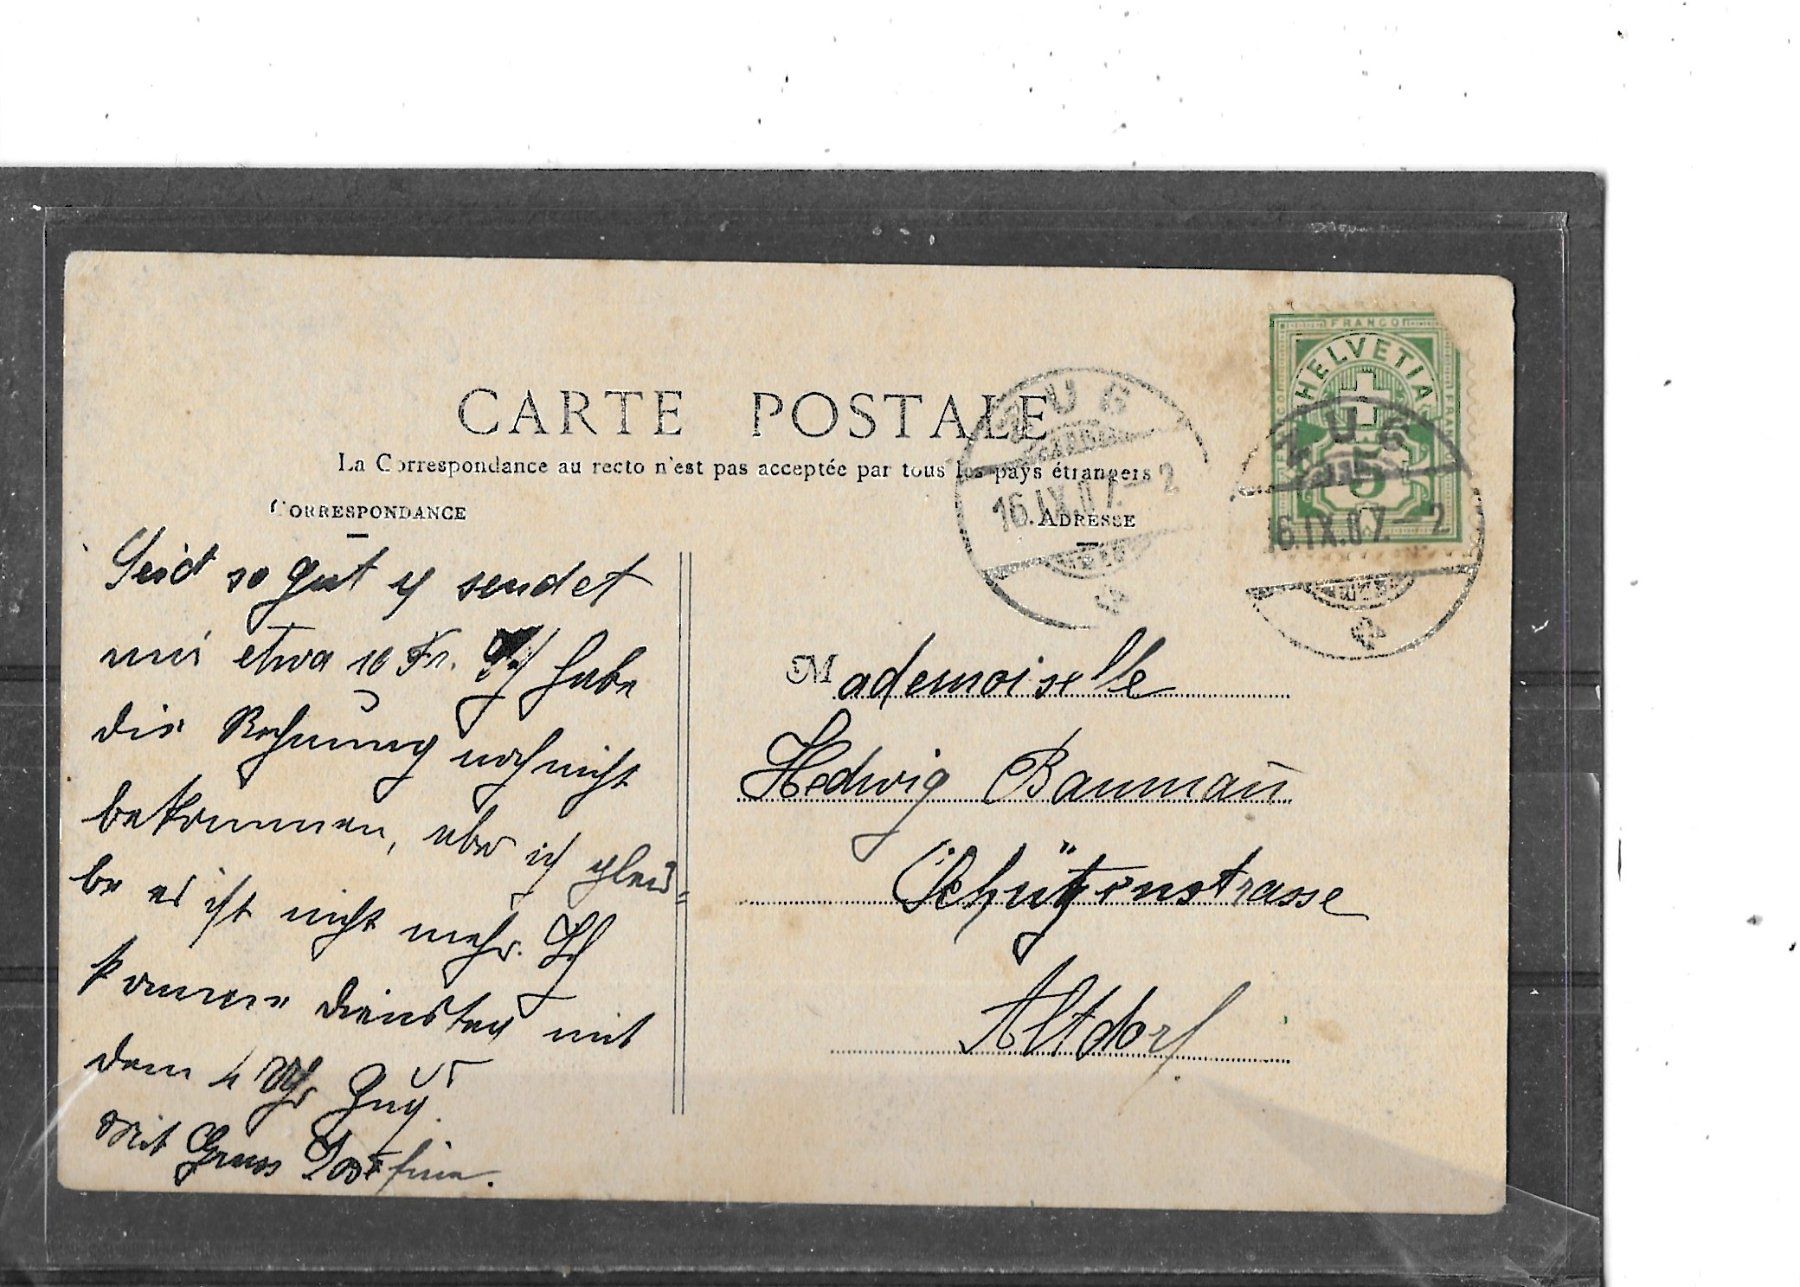 CARTE POSTALE
La Correspondance au recto n'est pas acceptée par tous les pays étrangers
CORRESPONDANCE
ADRESSE
FRANCO
HELVETIA
FRANCO
FRANCO
5
ZUG
16.IX.07.–2
ZUG
16.IX.07.–2
Seid so gut & sendet
mir etwa 10 Fr. Ich habe
die Rechnung noch nicht
bekommen, aber ich glau=
be es ist nicht mehr. Ich
komme Dienstag mit
dem 4 Uhr Zug.
Mit Gruss Josefine.
Mademoiselle
Hedwig Baumañ
Schützenstrasse
Altdorf.